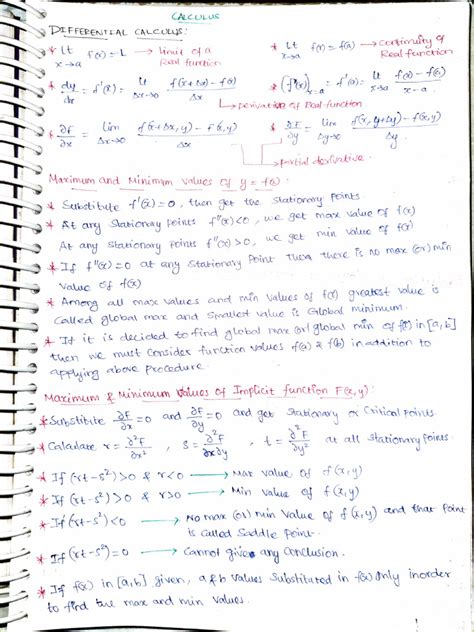 CALCULUS
DIFFERENTIAL CALCULUS:
* Lt x→a f(x) = L → limit of a Real function
* Lt x→a f(x) = f(a) → Continuity of Real function
* dy/dx = f'(x) = Lt Δx→0 f(x+Δx) - f(x) / Δx
* (f'(x))x=a = f'(a) = Lt x→a f(x) - f(a) / x-a
→ Derivative of Real function
* ∂F/∂x = lim Δx→0 f(x+Δx, y) - f(x, y) / Δx
* ∂F/∂y = lim Δy→0 f(x, y+Δy) - f(x, y) / Δy
→ partial derivative
Maximum and Minimum values of y = f(x)
* Substitute f'(x) = 0, then get the Stationary points.
* At any Stationary points f''(x) < 0, we get max value of f(x)
At any Stationary points f''(x) > 0, we get min value of f(x)
* If f''(x) = 0 at any Stationary Point then there is no max (or) min
value of f(x)
* Among all max values and min values of f(x) greatest value is
Called global max and Smallest value is Global minimum.
* If it is decided to find global max (or) global min of f(x) in [a, b]
then we must Consider function values f(a) & f(b) in addition to
applying above procedure.
Maximum & Minimum Values of Implicit function F(x, y):
* Substitute ∂F/∂x = 0 and ∂F/∂y = 0 and get Stationary or Critical points.
* Calculate r = ∂²F/∂x², s = ∂²F/∂x∂y, t = ∂²F/∂y² at all stationary points.
* If (rt-s²) > 0 & r < 0 → Max value of f(x, y)
* If (rt-s²) > 0 & r > 0 → Min value of f(x, y)
* If (rt-s²) < 0 → No max (or) min value of f(x, y) and that point
is Called Saddle Point.
* If (rt-s²) = 0 → Cannot give any Conclusion.
* If f(x) in [a, b] given, a & b values Substituted in f(x) only inorder
to find the max and min values.